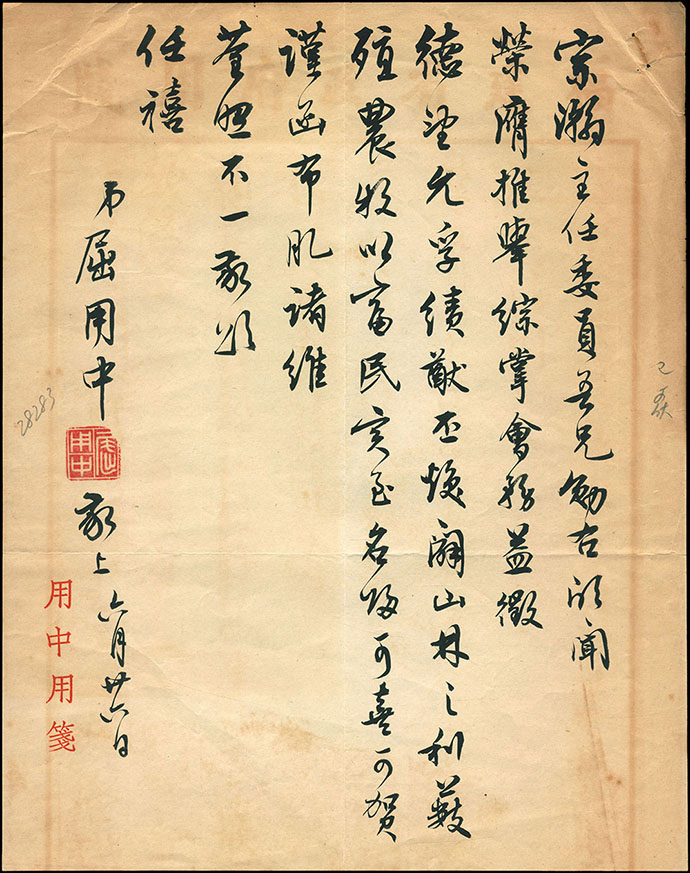 宗瀚主任委員吾兄勛右頃聞
榮膺推舉綜掌會務益徵
德望允孚績猷丕煥闢山林之利蓺
殖農牧以富民实至名歸可喜可贺
謹函布肊諸維
荃照不一敬頌
任禧
弟屈用中
屈用中
敬上六月廿六日
用中用箋
28283